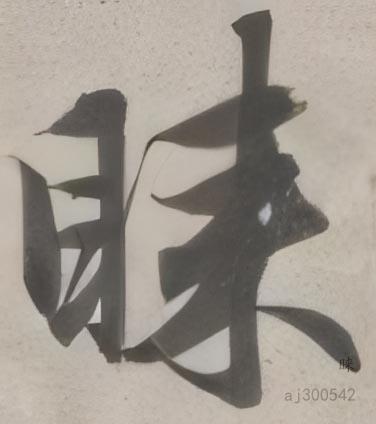 睐
睐
aj300542